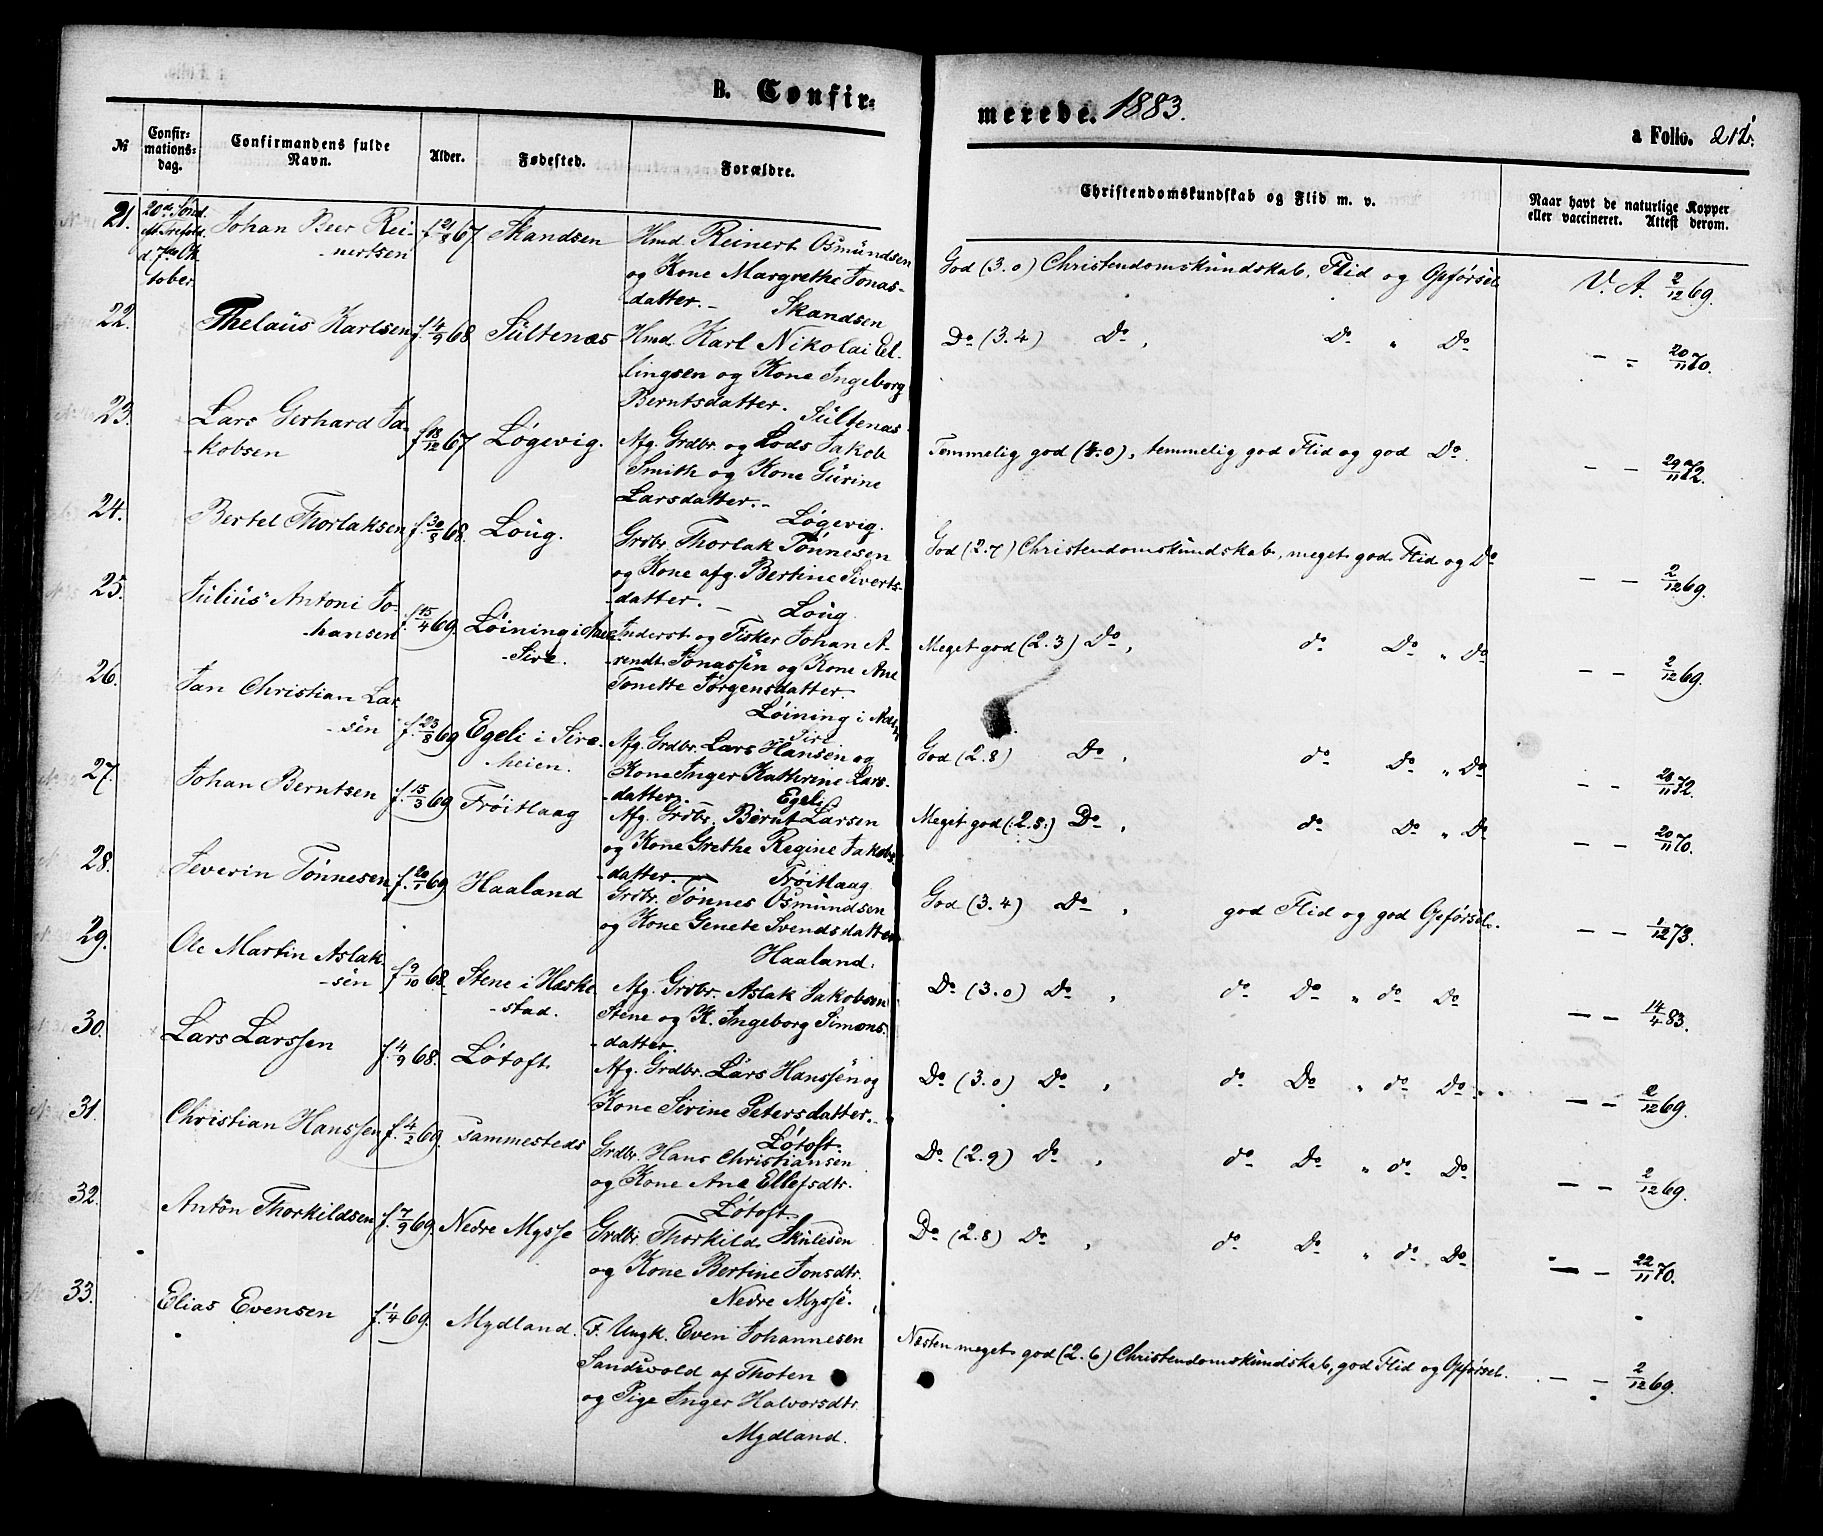 B. Confir-
merede. 1883.
a Folio. 212.
№
Confir-
mations-
dag.
Confirmandens fulde
Navn.
Alder.
Fødested.
Forældre.
Christendomskundskab og Flid m. v.
Naar havt de naturlige Kopper
eller vaccineret. Attest derom.
21.
20de Sönd.
ett. Trefold.
d. 7de Ok-
tober
Johan Beer Rei-
-nertsen
f. 21/8 67.
Skandsen
Hmd. Reinert Osmundsen
og Kone Margrethe Jonas-
-datter. -
Skandsen
God (3.0) Christendomskundskab, Flid og Opførsel
V. A. 2/12 69.
22.
Thelaus Karlsen
f. 4/9 68
Sultenæs
Hmd. Karl Nikolai El-
lingsen og Kone Ingeborg
Berntsdatter.
Sultenæs.
Do (3.4) Do , Do " Do
- - 20/11 70.
23.
Lars Gerhard Ja-
-kobsen
f. 18/12 67
Løgevig.
Afg. Grdbr. og Lods Jakob
Smith og Kone Gurine
Larsdatter. -
Løgevig.
Temmelig god (4.0), temmelig god Flid og god Do.
- - 29/11 72.
24.
Bertel Thorlaksen
f. 30/8 68.
Loug.
Grdbr. Thorlak Tønnesen
og Kone afg. Bertine Siverts-
-datter. -
Loug.
God (2.7) Christendomskundskab, meget god Flid og Do
- - 2/12 69.
25.
Julius Antoni Jo-
-hansen
f. 15/4 69.
Løining i Aaen-
-Sire.
Inderst og Fisker Johan A-
-rendt Jonassen og Kone Ane
Tonette Jørgensdatter.
Løining i Aaen-
-Sire
Meget god (2.3) Do , do Do " Do
- - 2/12 69.
26.
Jan Christian Lar-
-sen
f. 23/8 69
Egeli i Sire-
heien.
Afg. Grdbr. Lars Hansen og
Kone Inger Kathrine Lars-
-datter.
Egeli
God (2.8) Do , do Do " Do
- - 28/11 72.
27.
Johan Berntsen
f. 15/3 69
Trøitlaag
Afg. Grdbr. Bernt Larsen
og Kone Grethe Regine Jakobs-
-datter.
Trøitlaag
Meget god (2.5) Do , do Do " Do
- - 20/11 70.
28.
Severin Tønnesen
f. 20/1 69
Haaland
Grdbr. Tønnes Osmundsen
og Kone Genete Svendsdatter
Haaland.
God (3.4) Do , god Flid og god Opførsel.
- - 1/12 73.
29.
Ole Martin Aslak-
-sen
f. 9/10 68.
Stene i Heske-
-stad.
Afg. Grdbr. Aslak Jakobsen
Stene og K. Ingeborg Simons-
-datter.
Do (3.0) Do , do Do " do Do
- - 14/4 83.
30.
Lars Larssen
f. 4/9 68.
Løtoft
Afg. Grdbr. Lars Hanssen og
Kone Sirine Petersdatter.
Løtoft.
Do (3.0) Do , do Do " do Do
- - 2/12 69.
31.
Christian Hanssen
f. 4/2 69.
sammesteds
Grdbr. Hans Christiansen
og Kone Ane Ellefsdtr.
Løtoft.
Do (2.9) Do , do Do " do Do
- - 2/12 69.
32.
Anton Thorkildsen
f. 7/9 69.
Nedre Mysse
Grdbr. Thorkild Skulesen
og Kone Bertine Jonsdtr.
Nedre Mysse.
Do (2.8) Do , do Do " do Do
- - 22/11 70.
33.
Elias Evensen
f. 1/4 69.
Mydland.
F. Ungk. Even Johannesen
Sandsvold af Thoten
og Pige Inger Halvorsdtr.
Mydland.
Næsten meget god (2.6) Christendomskundskab, god Flid og Opførsel.
- - 2/12 69.